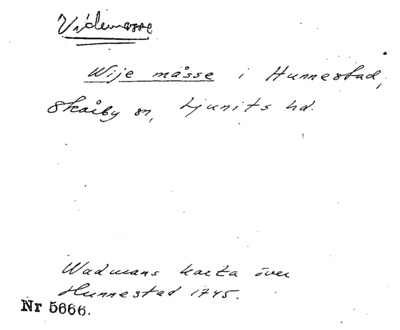 Videmosse
Wije måsse i Hunnestad,
Skårby sn, Ljunits hd.
Wadmans karta över
Hunnestad 1745.
Nr 5666.